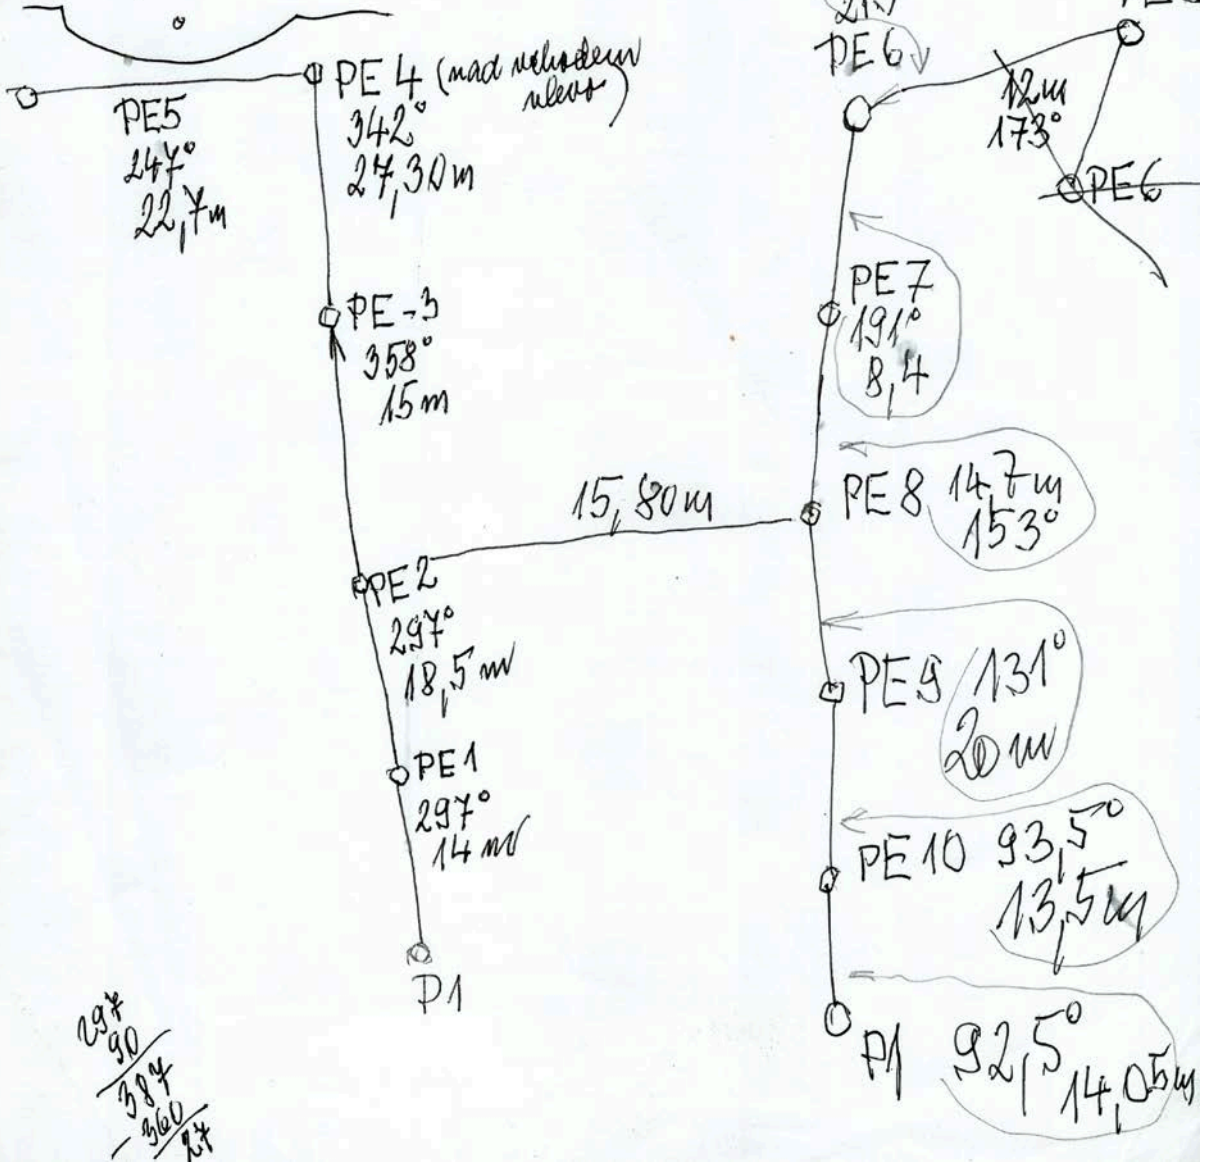 PE4 (nad vchodem
vlevo)
342°
27,30m
PE5
247°
22,7m
PE-3
358°
15m
15,80m
PE2
297°
18,5m
PE1
297°
14m
P1
297
90
387
- 360
27
PE6
12m
173°
PE6
PE7
191°
8,4
PE8 14,7m
153°
PE9 131°
20m
PE10 93,5°
13,5m
P1 92,5°
14,05m